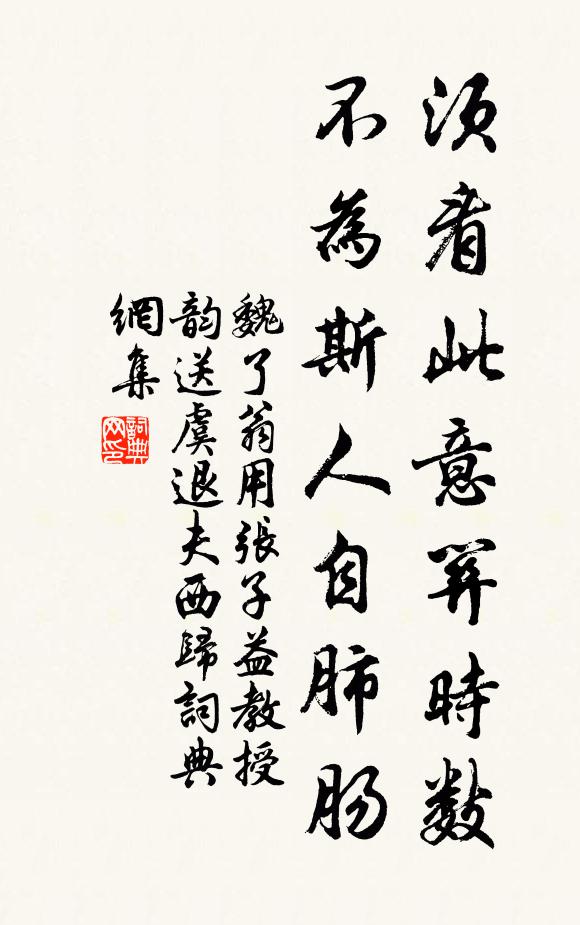 須看此意關時數
不為斯人自肺腸
魏了翁用張子益教授
韵送虞退夫西歸詞典
網集
詞典
网印